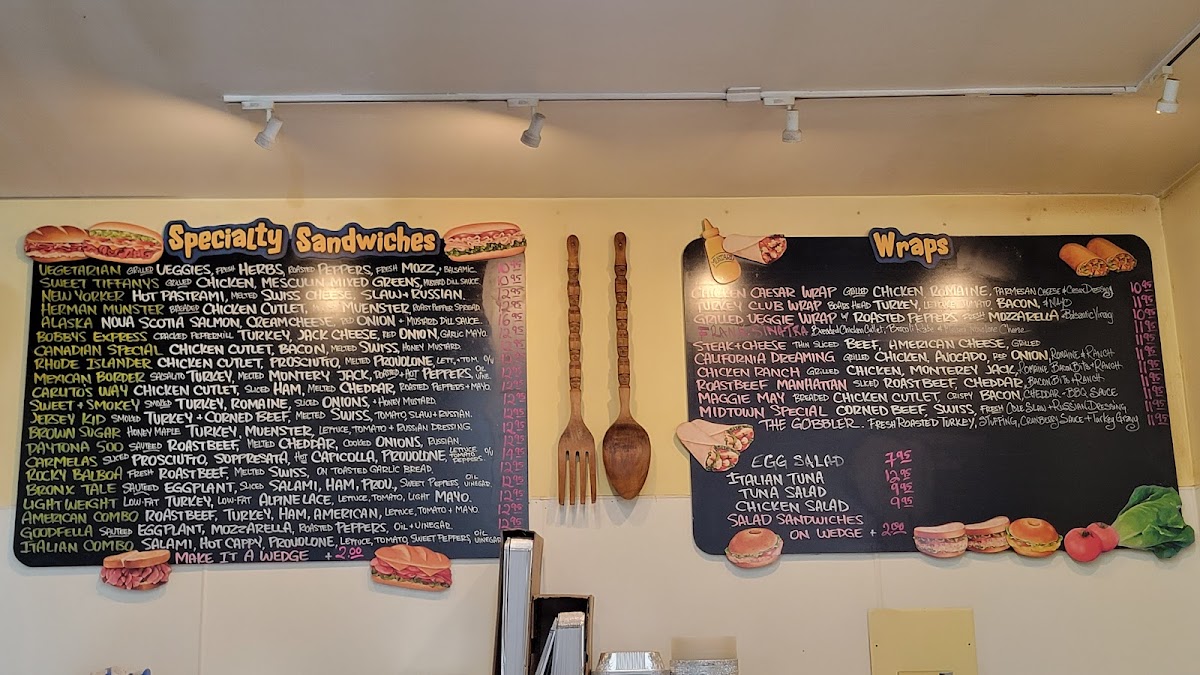 Specialty Sandwiches
VEGETARIAN GRILLED VEGGIES, FRESH HERBS, ROASTED PEPPERS, FRESH MOZZ, + BALSAMIC.
SWEET TIFFANYS GRILLED CHICKEN, MESCULIN MIXED GREENS, MUSTARD DILL SAUCE
NEW YORKER HOT PASTRAMI, MELTED SWISS CHEESE, SLAW + RUSSIAN.
HERMAN MUNSTER BREADED CHICKEN CUTLET, MUENSTER, ROAST PEPPER SPREAD
ALASKA NOVA SCOTIA SALMON, CREAMCHEESE, RED ONION + MUSTARD DILL SAUCE.
BOBBYS EXPRESS CRACKED PEPPERMILL TURKEY, JACK CHEESE, RED ONION, GARLIC MAYO.
CANADIAN SPECIAL CHICKEN CUTLET, BACON, MELTED SWISS, HONEY MUSTARD.
RHODE ISLANDER CHICKEN CUTLET, PROSCIUTTO, MELTED PROVOLONE, LETT, + TOM. O/V
MEXICAN BORDER SALSALITO TURKEY, MELTED MONTERY JACK, ROASTED + HOT PEPPERS, OIL VINE. 12.95
CARLITOS WAY CHICKEN CUTLET, SLICED HAM, MELTED CHEDDAR, ROASTED PEPPERS + MAYO. 12.95
SWEET + SMOKEY SMOKED TURKEY, ROMAINE, SLICED ONIONS, + HONEY MUSTARD. 12.95
JERSEY KID SMOKED TURKEY + CORNED BEEF, MELTED SWISS, TOMATO SLAW + RUSSIAN. 12.95
BROWN SUGAR HONEY MAPLE TURKEY, MUENSTER, LETTUCE, TOMATO + RUSSIAN DRESSING. 12.95
DAYTONA 500 SAUTEED ROASTBEEF, MELTED CHEDDAR, COOKED ONIONS, RUSSIAN 12.95
CARMELAS SLICED PROSCIUTTO, SOPPRESATA, HOT CAPICOLLA, PROVOLONE, LETTUCE TOMATO PEPPERS. O/V 14.95
ROCKY BALBOA FRESH ROASTBEEF, MELTED SWISS, ON TOASTED GARLIC BREAD. 12.95
BRONX TALE SAUTEED EGGPLANT, SLICED SALAMI, HAM, PROV., SWEET PEPPERS, OIL VINEGAR. 12.95
LIGHTWEIGHT LOW-FAT TURKEY, LOW-FAT ALPINE LACE, LETTUCE, TOMATO, LIGHT MAYO. 12.95
AMERICAN COMBO ROASTBEEF, TURKEY, HAM, AMERICAN, LETTUCE, TOMATO + MAYO. 12.95
GOODFELLA SAUTEED EGGPLANT, MOZZARELLA, ROASTED PEPPERS, OIL + VINEGAR. 12.95
ITALIAN COMBO SALAMI, HOT CAPPY, PROVOLONE, LETTUCE, TOMATO, SWEET PEPPERS, OIL VINEGAR
MAKE IT A WEDGE + 2.00
Wraps
CHICKEN CAESAR WRAP GRILLED CHICKEN ROMAINE, PARMESAN CHEESE + CAESAR DRESSING 10.95
TURKEY CLUB WRAP BOARS HEAD TURKEY, LETTUCE TOMATO BACON, + MAYO 11.95
GRILLED VEGGIE WRAP W/ ROASTED PEPPERS, FRESH MOZZARELLA + Balsamic Vinaig 10.95
SINATRA Breaded Chicken Cutlet, Cheese 11.95
STEAK + CHEESE THIN SLICED BEEF, AMERICAN CHEESE, GRILLED
CALIFORNIA DREAMING GRILLED CHICKEN, AVOCADO, RED ONION, ROMAINE + RANCH 11.95
CHICKEN RANCH GRILLED CHICKEN, MONTEREY JACK, ROMAINE BACON BITS + RANCH 11.95
ROASTBEEF MANHATTAN SLICED ROASTBEEF, CHEDDAR, BACON BITS + RANCH 11.95
MAGGIE MAY BREADED CHICKEN CUTLET, CRISPY BACON, CHEDDAR + BBQ SAUCE 11.95
MIDTOWN SPECIAL CORNED BEEF, SWISS, FRESH COLE SLAW + RUSSIAN DRESSING 11.95
THE GOBBLER.. FRESH ROASTED TURKEY, STUFFING, CRANBERRY SAUCE + TURKEY GRAVY 11.95
EGG SALAD 7.95
ITALIAN TUNA 12.95
TUNA SALAD 9.95
CHICKEN SALAD 9.95
SALAD SANDWICHES
ON WEDGE + 2.00